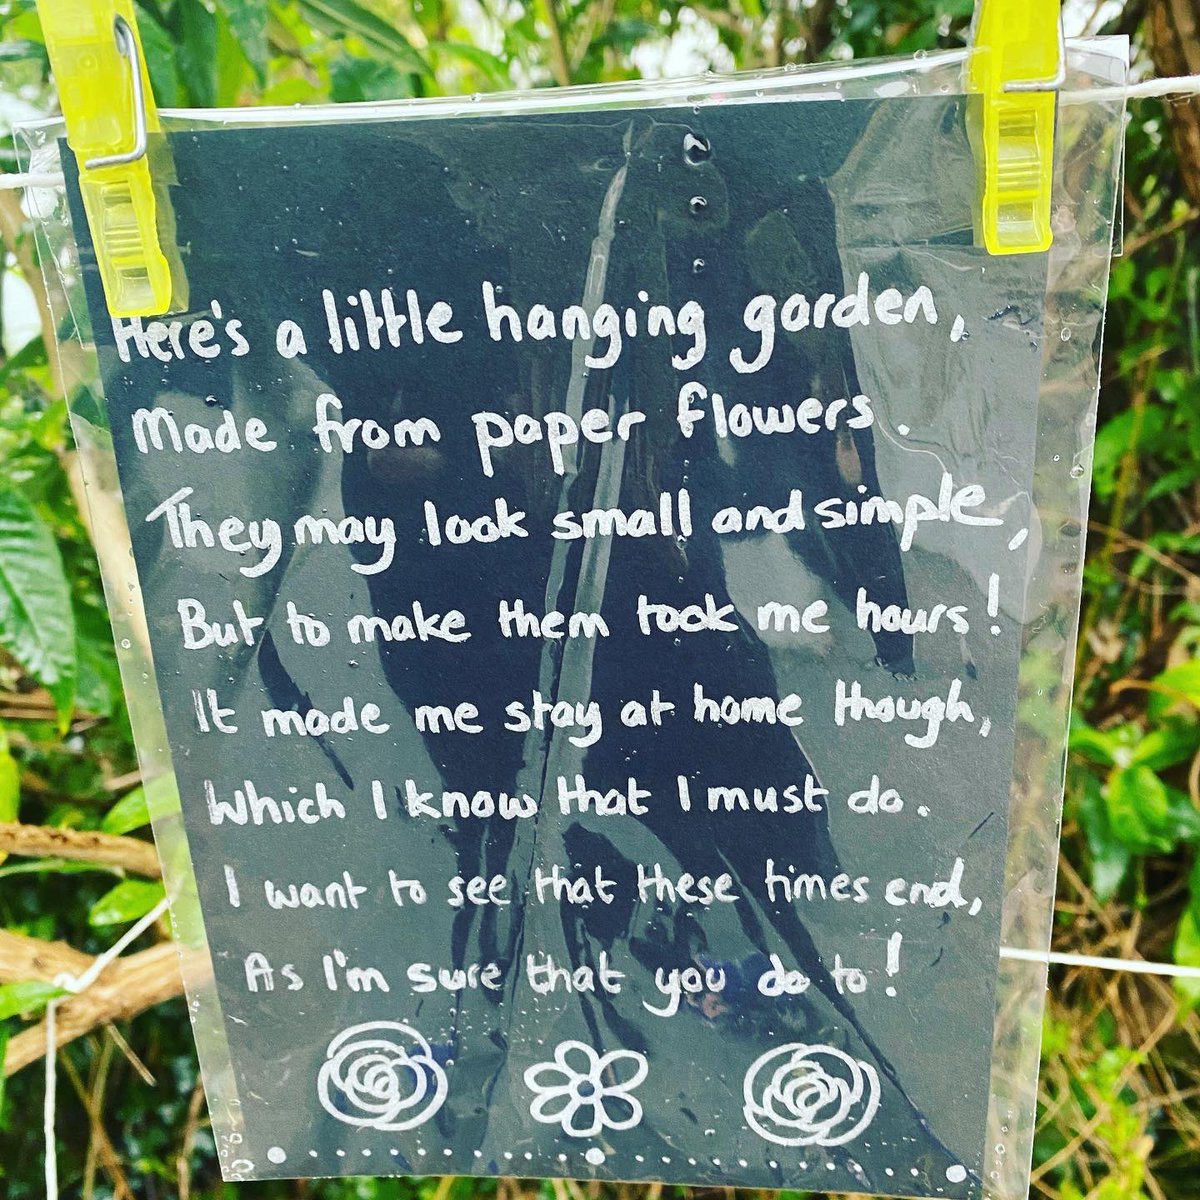 Here's a little hanging garden,
Made from paper flowers.
They may look small and simple,
But to make them took me hours!
It made me stay at home though,
Which I know that I must do.
I want to see that these times end,
As I'm sure that you do to!